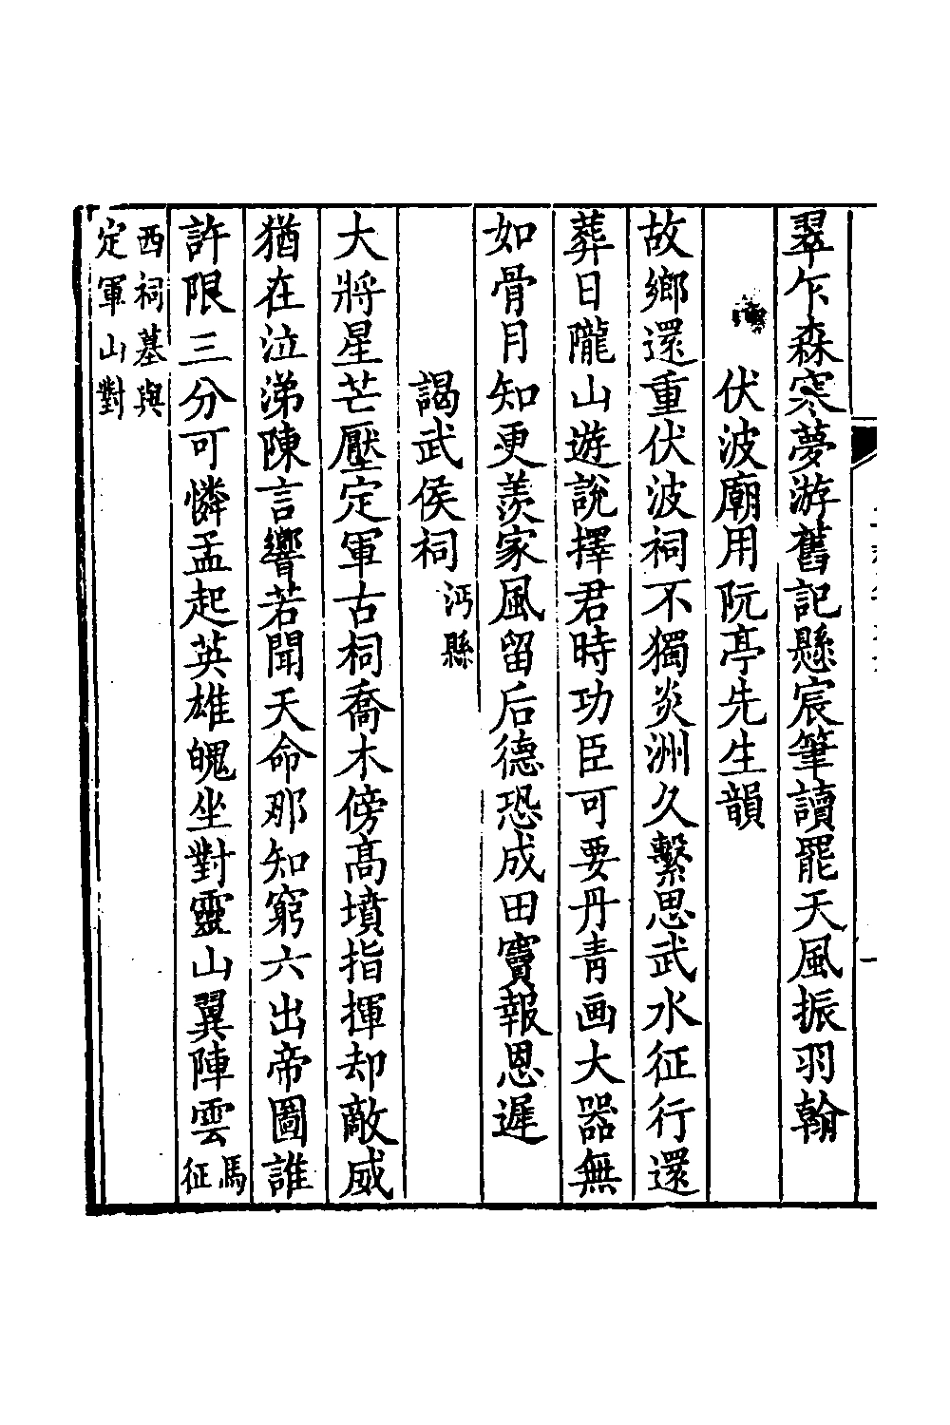 翠乍森寒夢游舊記懸宸筆讀罷天風振羽翰
伏波廟用阮亭先生韻
故鄉還重伏波祠不獨炎洲久繫思武水征行還
葬日隴山遊説擇君時功臣可要丹青画大器無
如骨月知更羨家風留后德恐成田竇報恩遲
謁武侯祠沔縣
大將星芒壓定軍古祠喬木傍高墳指揮却敵威
猶在泣涕陳言響若聞天命那知窮六出帝圖誰
許限三分可憐孟起英雄魄坐對靈山翼陣雲馬征
西祠墓與
定軍山對